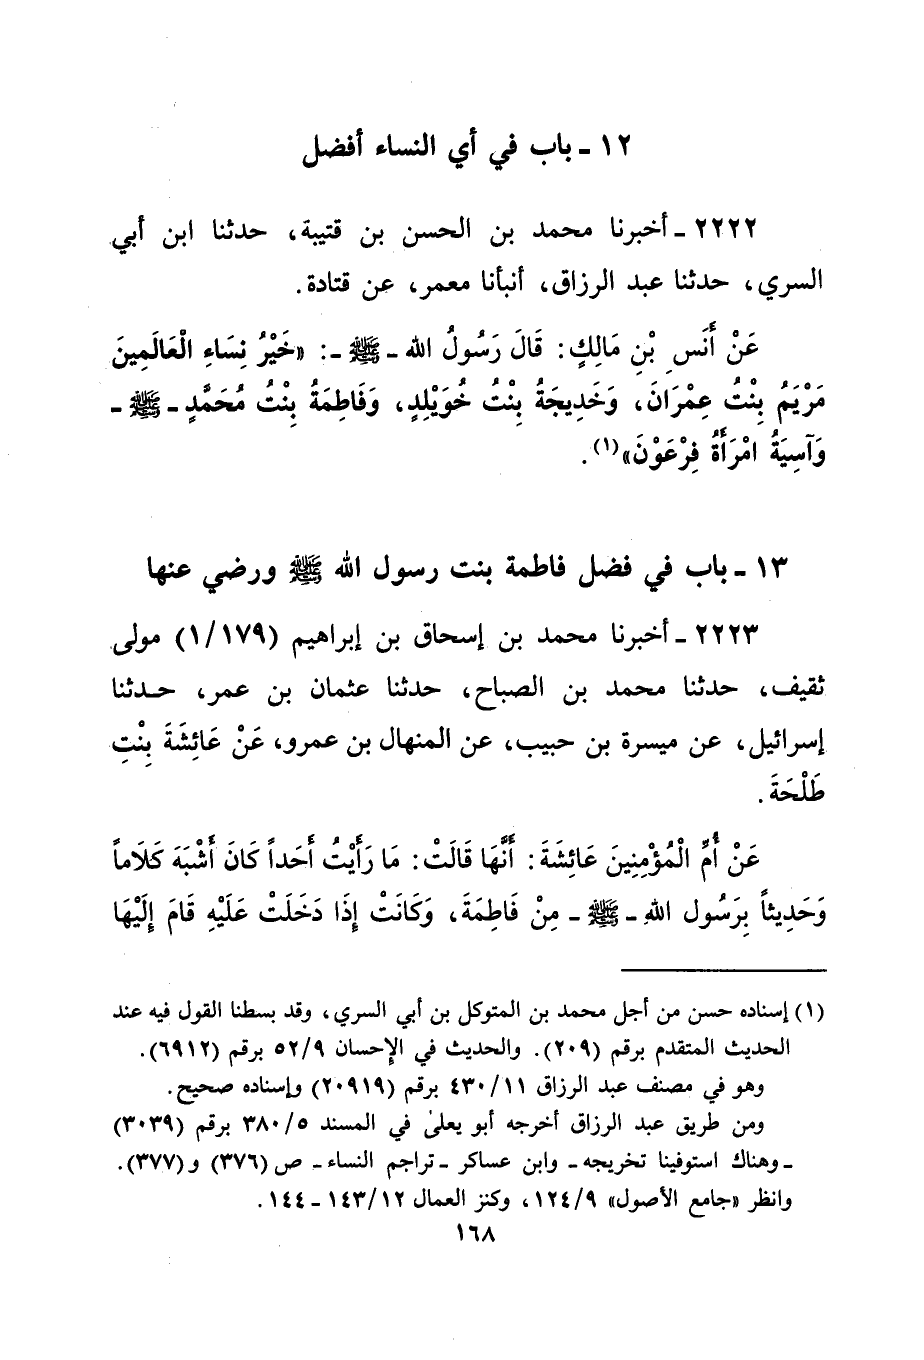 ١٢ - باب في أي النساء أفضل
٢٢٢٢ - أخبرنا محمد بن الحسن بن قتيبة، حدثنا ابن أبي
السري، حدثنا عبد الرزاق، أنبأنا معمر، عن قتادة.
عَنْ أَنَسِ بْنِ مَالِكٍ: قَالَ رَسُولُ الله - ﷺ -: «خَيْرُ نِسَاءِ الْعَالَمِينَ
مَرْيَمُ بِنْتُ عِمْرَانَ، وَخَدِيجَةُ بِنْتُ خُوَيْلِدٍ، وَفَاطِمَةُ بِنْتُ مُحَمَّدٍ - ﷺ -
وَآسِيَةُ امْرَأَةُ فِرْعَوْنَ»(١).
١٣ - باب في فضل فاطمة بنت رسول الله ﷺ ورضي عنها
٢٢٢٣ - أخبرنا محمد بن إسحاق بن إبراهيم (١/١٧٩) مولى
ثقيف، حدثنا محمد بن الصباح، حدثنا عثمان بن عمر، حدثنا
إسرائيل، عن ميسرة بن حبيب، عن المنهال بن عمرو، عَنْ عَائِشَةَ بِنْتِ
طَلْحَةَ.
عَنْ أُمِّ الْمُؤْمِنِينَ عَائِشَةَ: أَنَّهَا قَالَتْ: مَا رَأَيْتُ أَحَداً كَانَ أَشْبَهَ كَلَاماً
وَحَدِيثاً بِرَسُولِ اللهِ - ﷺ - مِنْ فَاطِمَةَ، وَكَانَتْ إِذَا دَخَلَتْ عَلَيْهِ قَامَ إِلَيْهَا
(١) إسناده حسن من أجل محمد بن المتوكل بن أبي السري، وقد بسطنا القول فيه عند
الحديث المتقدم برقم (٢٠٩). والحديث في الإحسان ٥٢/٩ برقم (٦٩١٢).
وهو في مصنف عبد الرزاق ٤٣٠/١١ برقم (٢٠٩١٩) وإسناده صحيح.
ومن طريق عبد الرزاق أخرجه أبو يعلىٰ في المسند ٣٨٠/٥ برقم (٣٠٣٩)
- وهناك استوفينا تخريجه - وابن عساكر - تراجم النساء - ص (٣٧٦) و(٣٧٧).
وانظر «جامع الأصول» ١٢٤/٩، وكنز العمال ١٤٣/١٢ - ١٤٤.
١٦٨